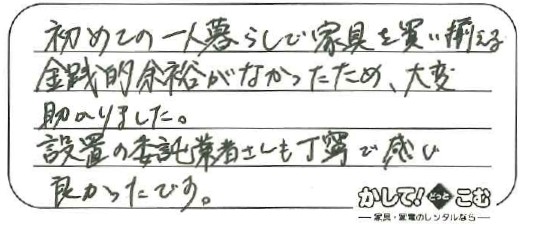 初めての一人暮らしで家具を買い揃える
金践的余裕がなかったため、大変
助かりました。
設置の委託業者さんも丁寧で感じ
良かったです。
かして!どっとこむ
家具・家電のレンタルなら